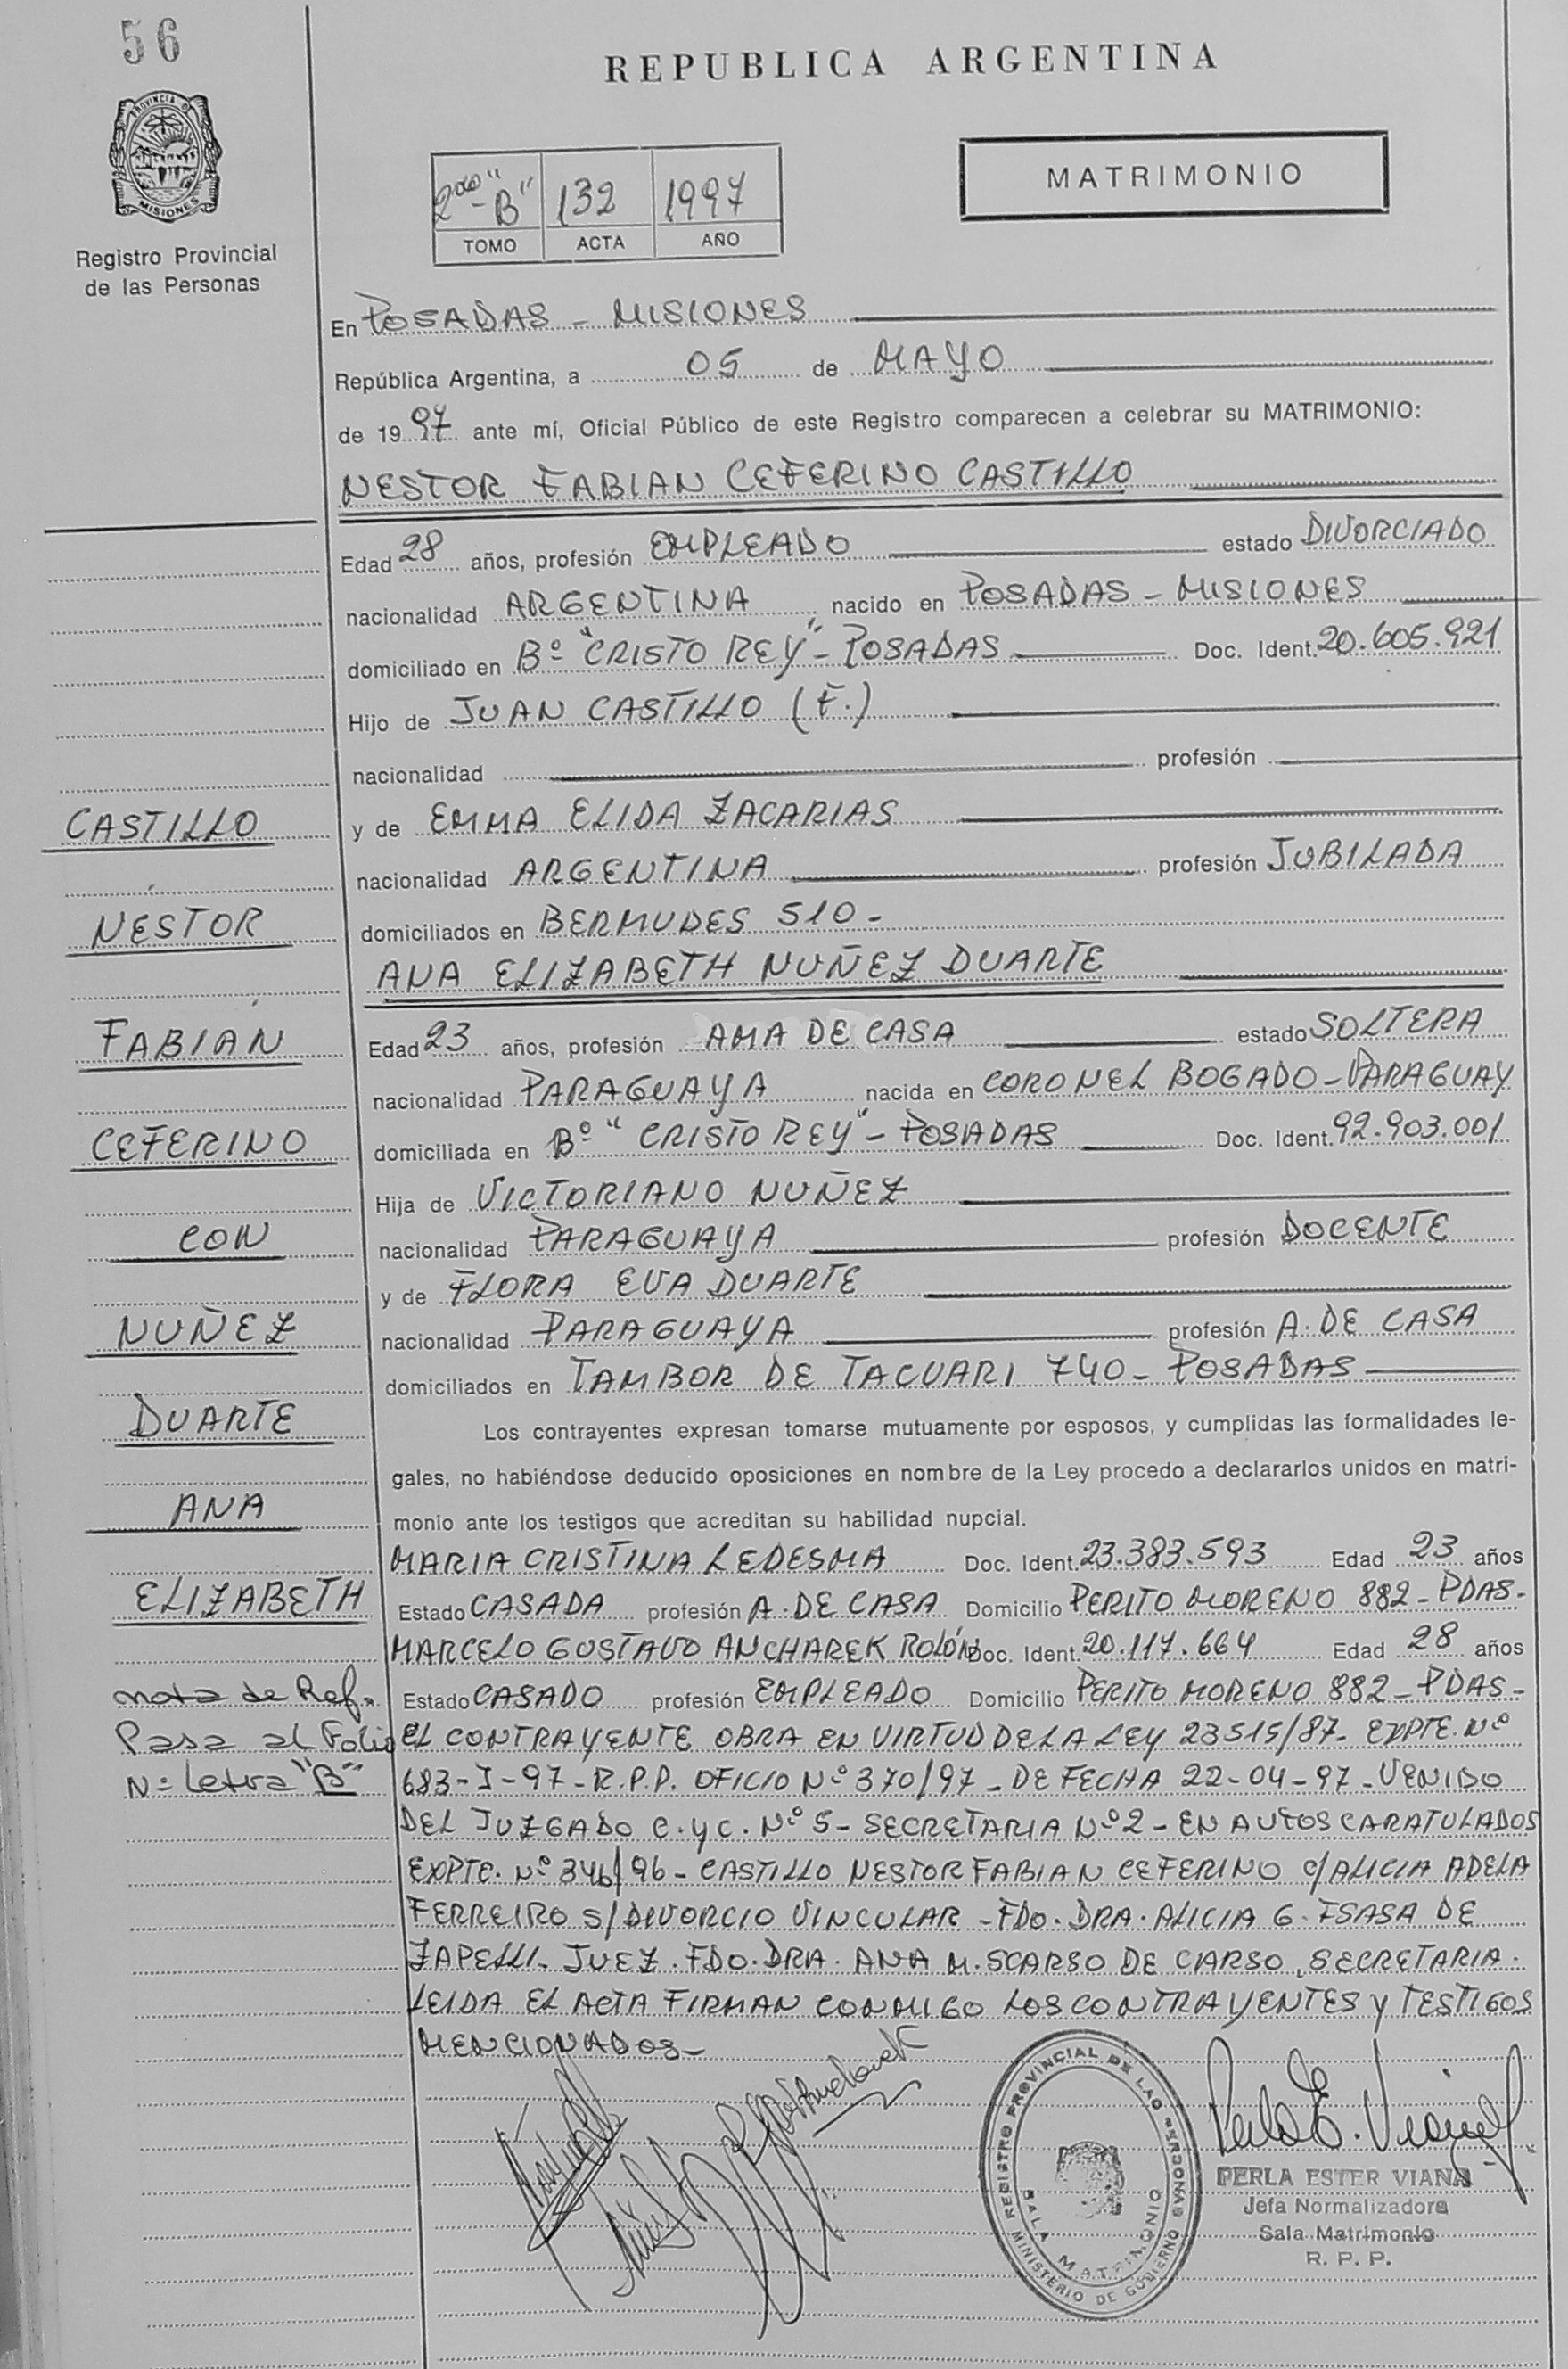 56
REPUBLICA ARGENTINA
PROVINCIA D
MISIONES
Registro Provincial
de las Personas
2do "B" 132 1997
TOMO ACTA AÑO
MATRIMONIO
En POSADAS - MISIONES
República Argentina, a 05 de MAYO
de 1997 ante mí, Oficial Público de este Registro comparecen a celebrar su MATRIMONIO:
NESTOR FABIAN CEFERINO CASTILLO
Edad 28 años, profesión EMPLEADO estado DIVORCIADO
nacionalidad ARGENTINA nacido en POSADAS - MISIONES
domiciliado en Bº "CRISTO REY" - POSADAS Doc. Ident. 20.605.921
Hijo de JUAN CASTILLO (F.)
nacionalidad profesión
y de EMMA ELIDA ZACARIAS
nacionalidad ARGENTINA profesión JUBILADA
domiciliados en BERMUDES 510 -
ANA ELIZABETH NUÑEZ DUARTE
Edad 23 años, profesión AMA DE CASA estado SOLTERA
nacionalidad PARAGUAYA nacida en CORONEL BOGADO - PARAGUAY
domiciliada en Bº "CRISTO REY" - POSADAS Doc. Ident. 92.903.001
Hija de VICTORIANO NUÑEZ
nacionalidad PARAGUAYA profesión DOCENTE
y de FLORA EVA DUARTE
nacionalidad PARAGUAYA profesión A. DE CASA
domiciliados en TAMBOR DE TACUARI 740 - POSADAS
Los contrayentes expresan tomarse mutuamente por esposos, y cumplidas las formalidades le-
gales, no habiéndose deducido oposiciones en nombre de la Ley procedo a declararlos unidos en matri-
monio ante los testigos que acreditan su habilidad nupcial.
MARIA CRISTINA LEDESMA Doc. Ident. 23.383.593 Edad 23 años
Estado CASADA profesión A. DE CASA Domicilio PERITO MORENO 882 - PDAS -
MARCELO GUSTAVO ANCHAREK ROLÓN Doc. Ident. 20.117.664 Edad 28 años
Estado CASADO profesión EMPLEADO Domicilio PERITO MORENO 882 - PDAS -
EL CONTRAYENTE OBRA EN VIRTUD DE LA LEY 23515/87 - EXPTE. Nº
683-I-97 - R.P.P. OFICIO Nº 370/97 - DE FECHA 22-04-97 - VENIDO
DEL JUZGADO C. y C. Nº 5 - SECRETARIA Nº 2 - EN AUTOS CARATULADOS
EXPTE. Nº 346/96 - CASTILLO NESTOR FABIAN CEFERINO c/ ALICIA ADELA
FERREIRO s/ DIVORCIO VINCULAR - FDO. DRA. ALICIA G. ISASA DE
ZAPELLI - JUEZ. FDO. DRA. ANA M. SCARSO DE CARSO, SECRETARIA.
LEIDA EL ACTA FIRMAN CONMIGO LOS CONTRAYENTES y TESTIGOS
MENCIONADOS -
CASTILLO
NESTOR
FABIAN
CEFERINO
CON
NUÑEZ
DUARTE
ANA
ELIZABETH
nota de Ref.
Pasa al Folio
Nº letra "B"
REGISTRO PROVINCIAL DE LAS PERSONAS
SALA MATRIMONIO
MINISTERIO DE GOBIERNO
Perla E. Viana
PERLA ESTER VIANA
Jefa Normalizadora
Sala Matrimonio
R. P. P.